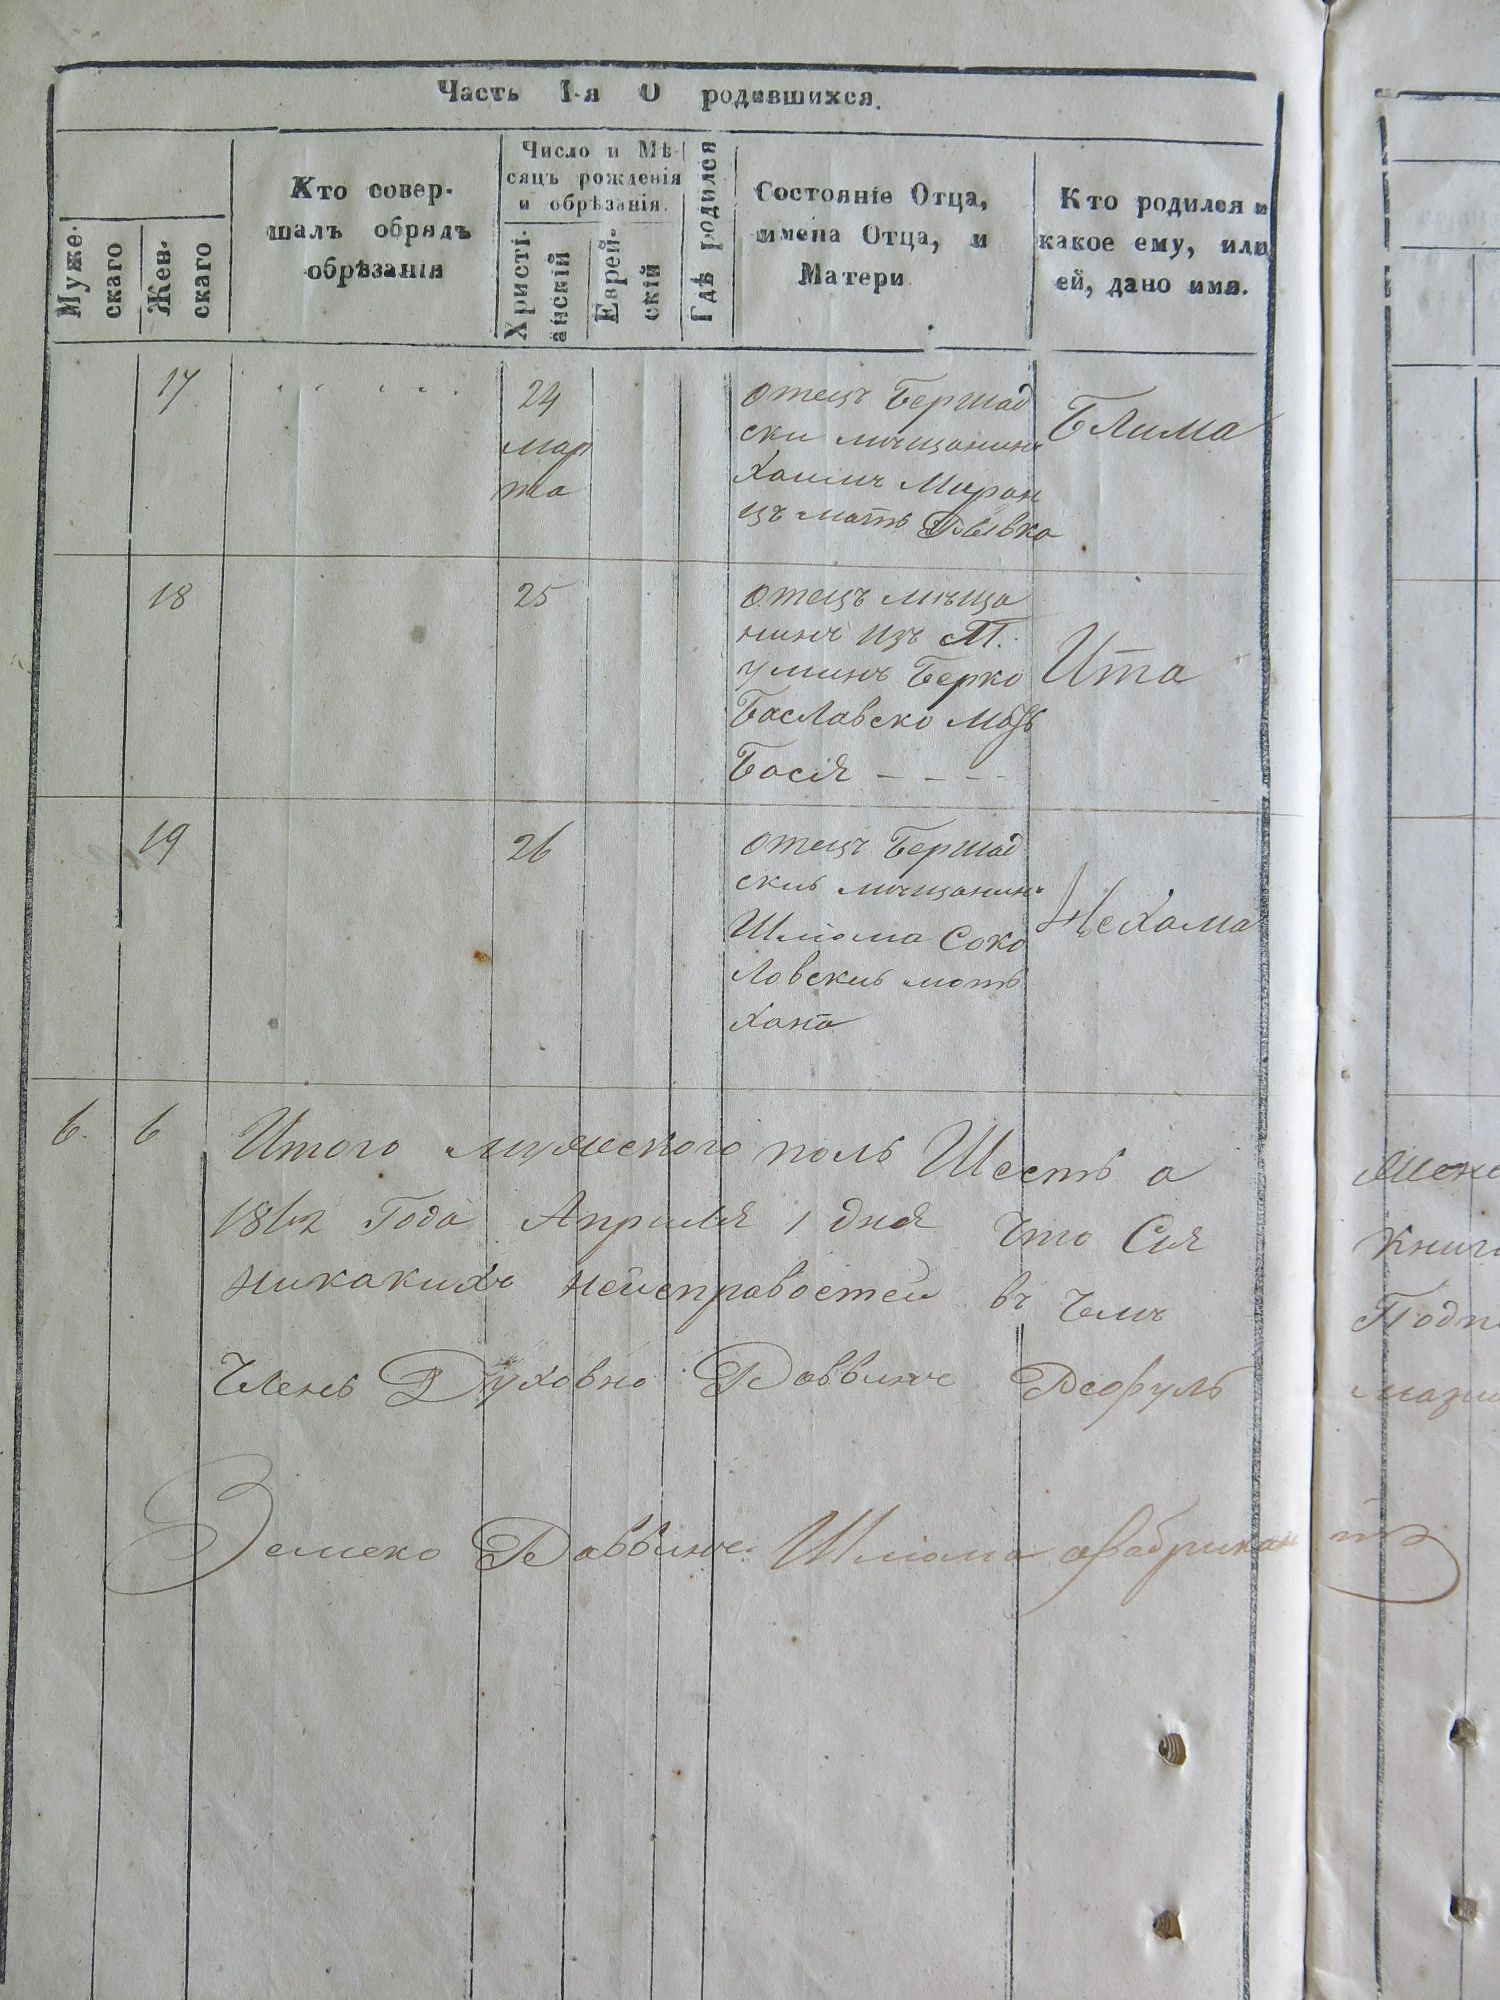 Часть I-я О родившихся.
Муже-
скаго
Жен-
скаго
Кто совер-
шалъ обрядъ
обрѣзанія
Число и Мѣ-
сяцъ рожденія
и обрѣзанія.
Христі-
анскій
Еврей-
скій
Гдѣ родился
Состояніе Отца,
имена Отца, и
Матери
Кто родился и
какое ему, или
ей, дано имя.
17
24
мар
та
отецъ Бершад
ски мещанинъ
Хаимъ Миран
цъ мать Рывка
Блима
18
25
отецъ меща
нинъ изъ М.
Уминъ Берко
Баславско мать
Бася - - - -
Ита
19
26
отецъ Бершад
скиь мещанинъ
Шліома Соко
ловскиь мать
Хана
Нехама
6. 6 Итого мужеского поль Шесть а
1862 Года Апреля 1 дня Что Сія
никакихъ неисправостей въ чемъ
Членъ Духовно Раввинъ
Раввинъ Шліома Фабрикантъ
Книг
Подп